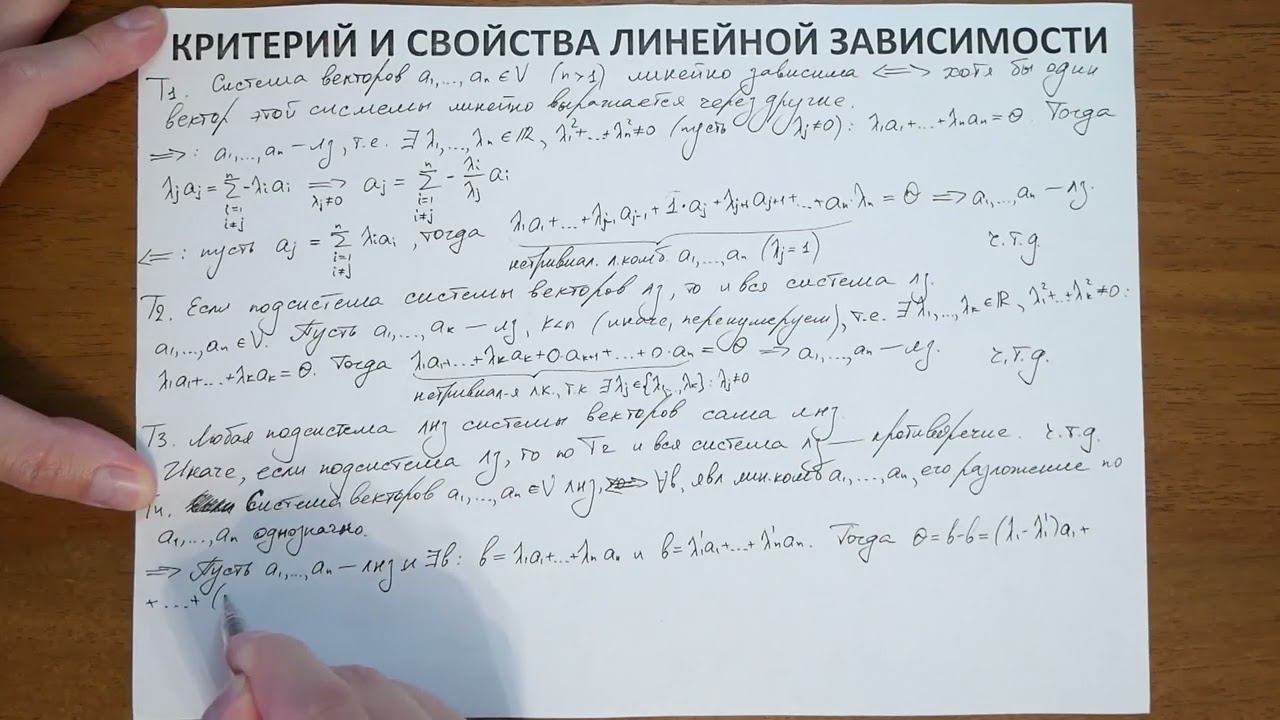 КРИТЕРИЙ И СВОЙСТВА ЛИНЕЙНОЙ ЗАВИСИМОСТИ
T1. Система векторов a₁,...,aₙ ∈ V (n>1) линейно зависима ⟺ хотя бы один
вектор этой системы линейно выражается через другие.
⟹: a₁,...,aₙ – лз, т.е. ∃ λ₁,...,λₙ ∈ ℝ, λ₁²+...+λₙ²≠0 (пусть λⱼ≠0): λ₁a₁+...+λₙaₙ=θ. Тогда
λⱼaⱼ = ∑ⁿᵢ₌₁, ᵢ≠ⱼ -λᵢaᵢ ⟹ (λⱼ≠0) aⱼ = ∑ⁿᵢ₌₁, ᵢ≠ⱼ - λᵢ/λⱼ aᵢ
⟸: пусть aⱼ = ∑ⁿᵢ₌₁, ᵢ≠ⱼ λᵢaᵢ, тогда λ₁a₁+...+λⱼ₋₁aⱼ₋₁+1·aⱼ+λⱼ₊₁aⱼ₊₁+...+aₙ·λₙ = θ ⟹ a₁,...,aₙ – лз.
нетривиал. л.комб. a₁,...,aₙ (λⱼ=1) ч.т.д.
T2. Если подсистема системы векторов лз, то и вся система лз.
a₁,...,aₙ ∈ V. Пусть a₁,...,aₖ – лз, k<n (иначе, перенумеруем), т.е. ∃ λ₁,...,λₖ ∈ ℝ, λ₁²+...+λₖ²≠0:
λ₁a₁+...+λₖaₖ=θ. Тогда λ₁a₁+...+λₖaₖ+0·aₖ₊₁+...+0·aₙ = θ ⟹ a₁,...,aₙ – лз. ч.т.д.
нетривиал-я лк, т.к ∃ λⱼ∈{λ₁,...,λₖ}: λⱼ≠0
T3. Любая подсистема лнз системы векторов сама лнз.
Иначе, если подсистема лз, то по T2 и вся система лз — противоречие. ч.т.д.
T4. Система векторов a₁,...,aₙ ∈ V лнз, ⟺ ∀b, явл лин.комб a₁,...,aₙ, его разложение по
a₁,...,aₙ однозначно.
⟹ Пусть a₁,...,aₙ – лнз и ∃b: b=λ₁a₁+...+λₙaₙ и b=λ₁'a₁+...+λₙ'aₙ. Тогда θ=b-b=(λ₁-λ₁')a₁+
+...+(